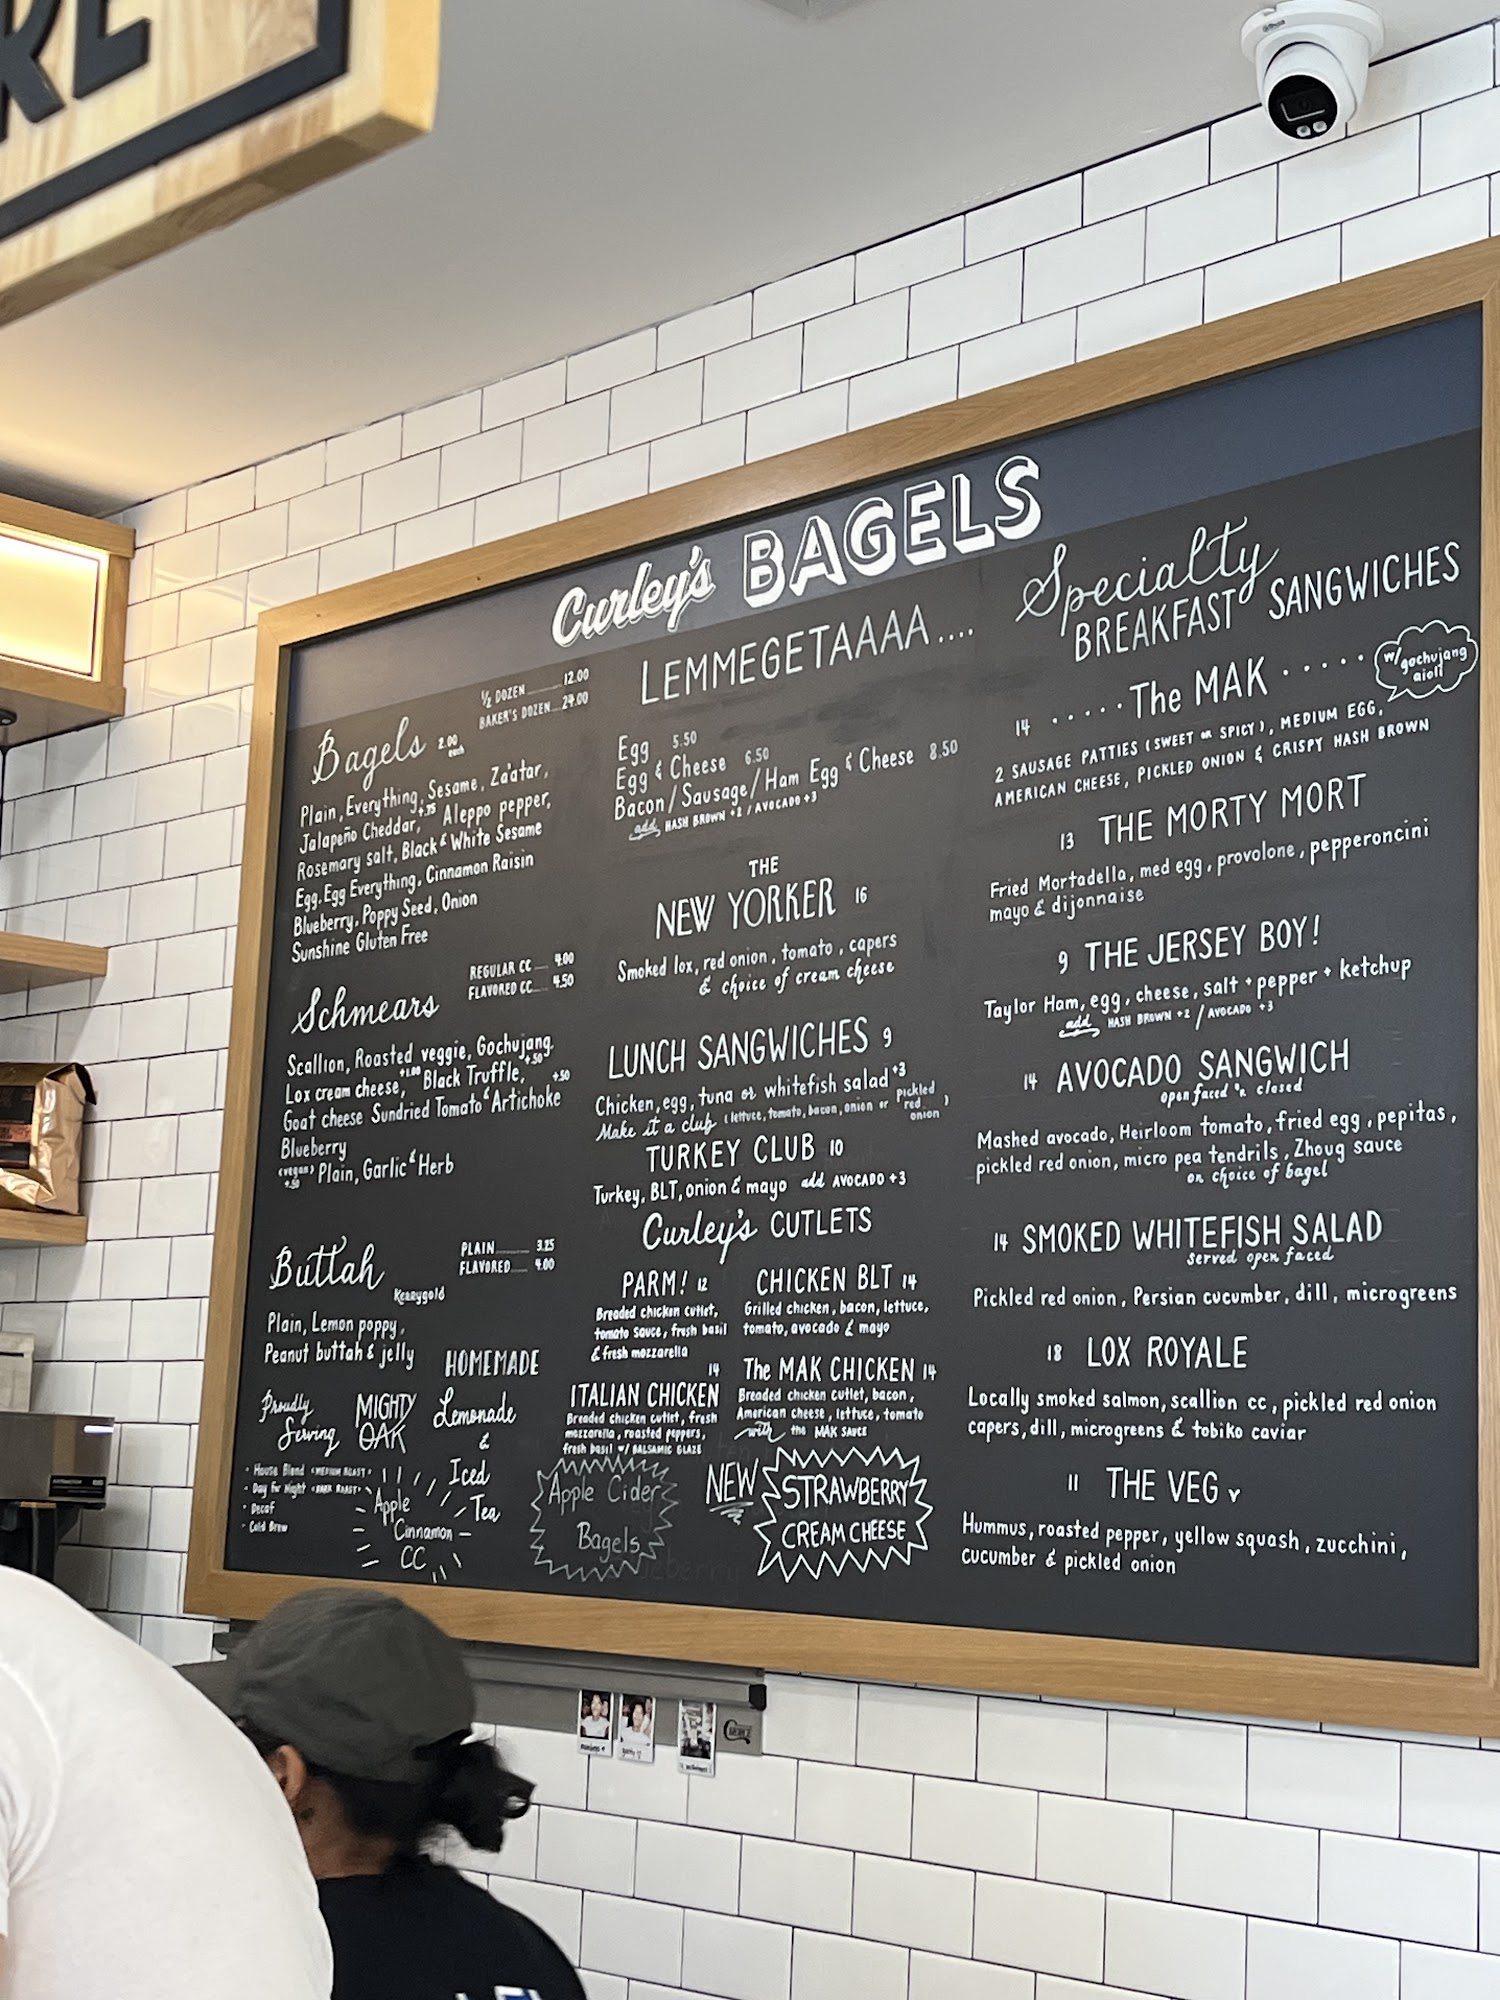 RE
Curley's BAGELS
Bagels 2.00 each
1/2 DOZEN 12.00
BAKER'S DOZEN 24.00
Plain, Everything, Sesame, Za'atar,
Jalapeño Cheddar, +.75 Aleppo pepper,
Rosemary salt, Black & White Sesame
Egg, Egg Everything, Cinnamon Raisin
Blueberry, Poppy Seed, Onion
Sunshine Gluten Free
Schmears
REGULAR CC 4.00
FLAVORED CC 4.50
Scallion, Roasted veggie, Gochujang,
Lox cream cheese, +1.00 Black Truffle, +.50
Goat cheese Sundried Tomato & Artichoke +.50
Blueberry
(vegan) +.50 Plain, Garlic & Herb
Buttah
PLAIN 3.25
FLAVORED 4.00
Kerrygold
Plain, Lemon poppy,
Peanut buttah & jelly
Proudly Serving
MIGHTY OAK
• House Blend (MEDIUM ROAST)
• Day for Night (DARK ROAST)
• Decaf
• Cold Brew
HOMEMADE
Lemonade
&
Iced
Tea
Apple
Cinnamon
CC
LEMMEGETAAAA....
Egg 5.50
Egg & Cheese 6.50
Bacon/Sausage/Ham Egg & Cheese 8.50
add HASH BROWN +2 / AVOCADO +3
THE
NEW YORKER 16
Smoked lox, red onion, tomato, capers
& choice of cream cheese
LUNCH SANGWICHES 9
Chicken, egg, tuna or whitefish salad +3
Make it a club (lettuce, tomato, bacon, onion or pickled red onion)
TURKEY CLUB 10
Turkey, BLT, onion & mayo add AVOCADO +3
Curley's CUTLETS
PARM! 12
Breaded chicken cutlet,
tomato sauce, fresh basil
& fresh mozzarella
CHICKEN BLT 14
Grilled chicken, bacon, lettuce,
tomato, avocado & mayo
14
ITALIAN CHICKEN
Breaded chicken cutlet, fresh
mozzarella, roasted peppers,
fresh basil w/ BALSAMIC GLAZE
The MAK CHICKEN 14
Breaded chicken cutlet, bacon,
American cheese, lettuce, tomato
with the MAK SAUCE
Apple Cider
Bagels
NEW
STRAWBERRY
CREAM CHEESE
Specialty
BREAKFAST SANGWICHES
14 ..... The MAK ..... w/ gochujang aioli
2 SAUSAGE PATTIES (SWEET OR SPICY), MEDIUM EGG,
AMERICAN CHEESE, PICKLED ONION & CRISPY HASH BROWN
13 THE MORTY MORT
Fried Mortadella, med egg, provolone, pepperoncini
mayo & dijonnaise
9 THE JERSEY BOY!
Taylor Ham, egg, cheese, salt + pepper + ketchup
add HASH BROWN +2 / AVOCADO +3
14 AVOCADO SANGWICH
open faced 'r closed
Mashed avocado, Heirloom tomato, fried egg, pepitas,
pickled red onion, micro pea tendrils, Zhoug sauce
on choice of bagel
14 SMOKED WHITEFISH SALAD
served open faced
Pickled red onion, Persian cucumber, dill, microgreens
18 LOX ROYALE
Locally smoked salmon, scallion cc, pickled red onion
capers, dill, microgreens & tobiko caviar
11 THE VEG
Hummus, roasted pepper, yellow squash, zucchini,
cucumber & pickled onion